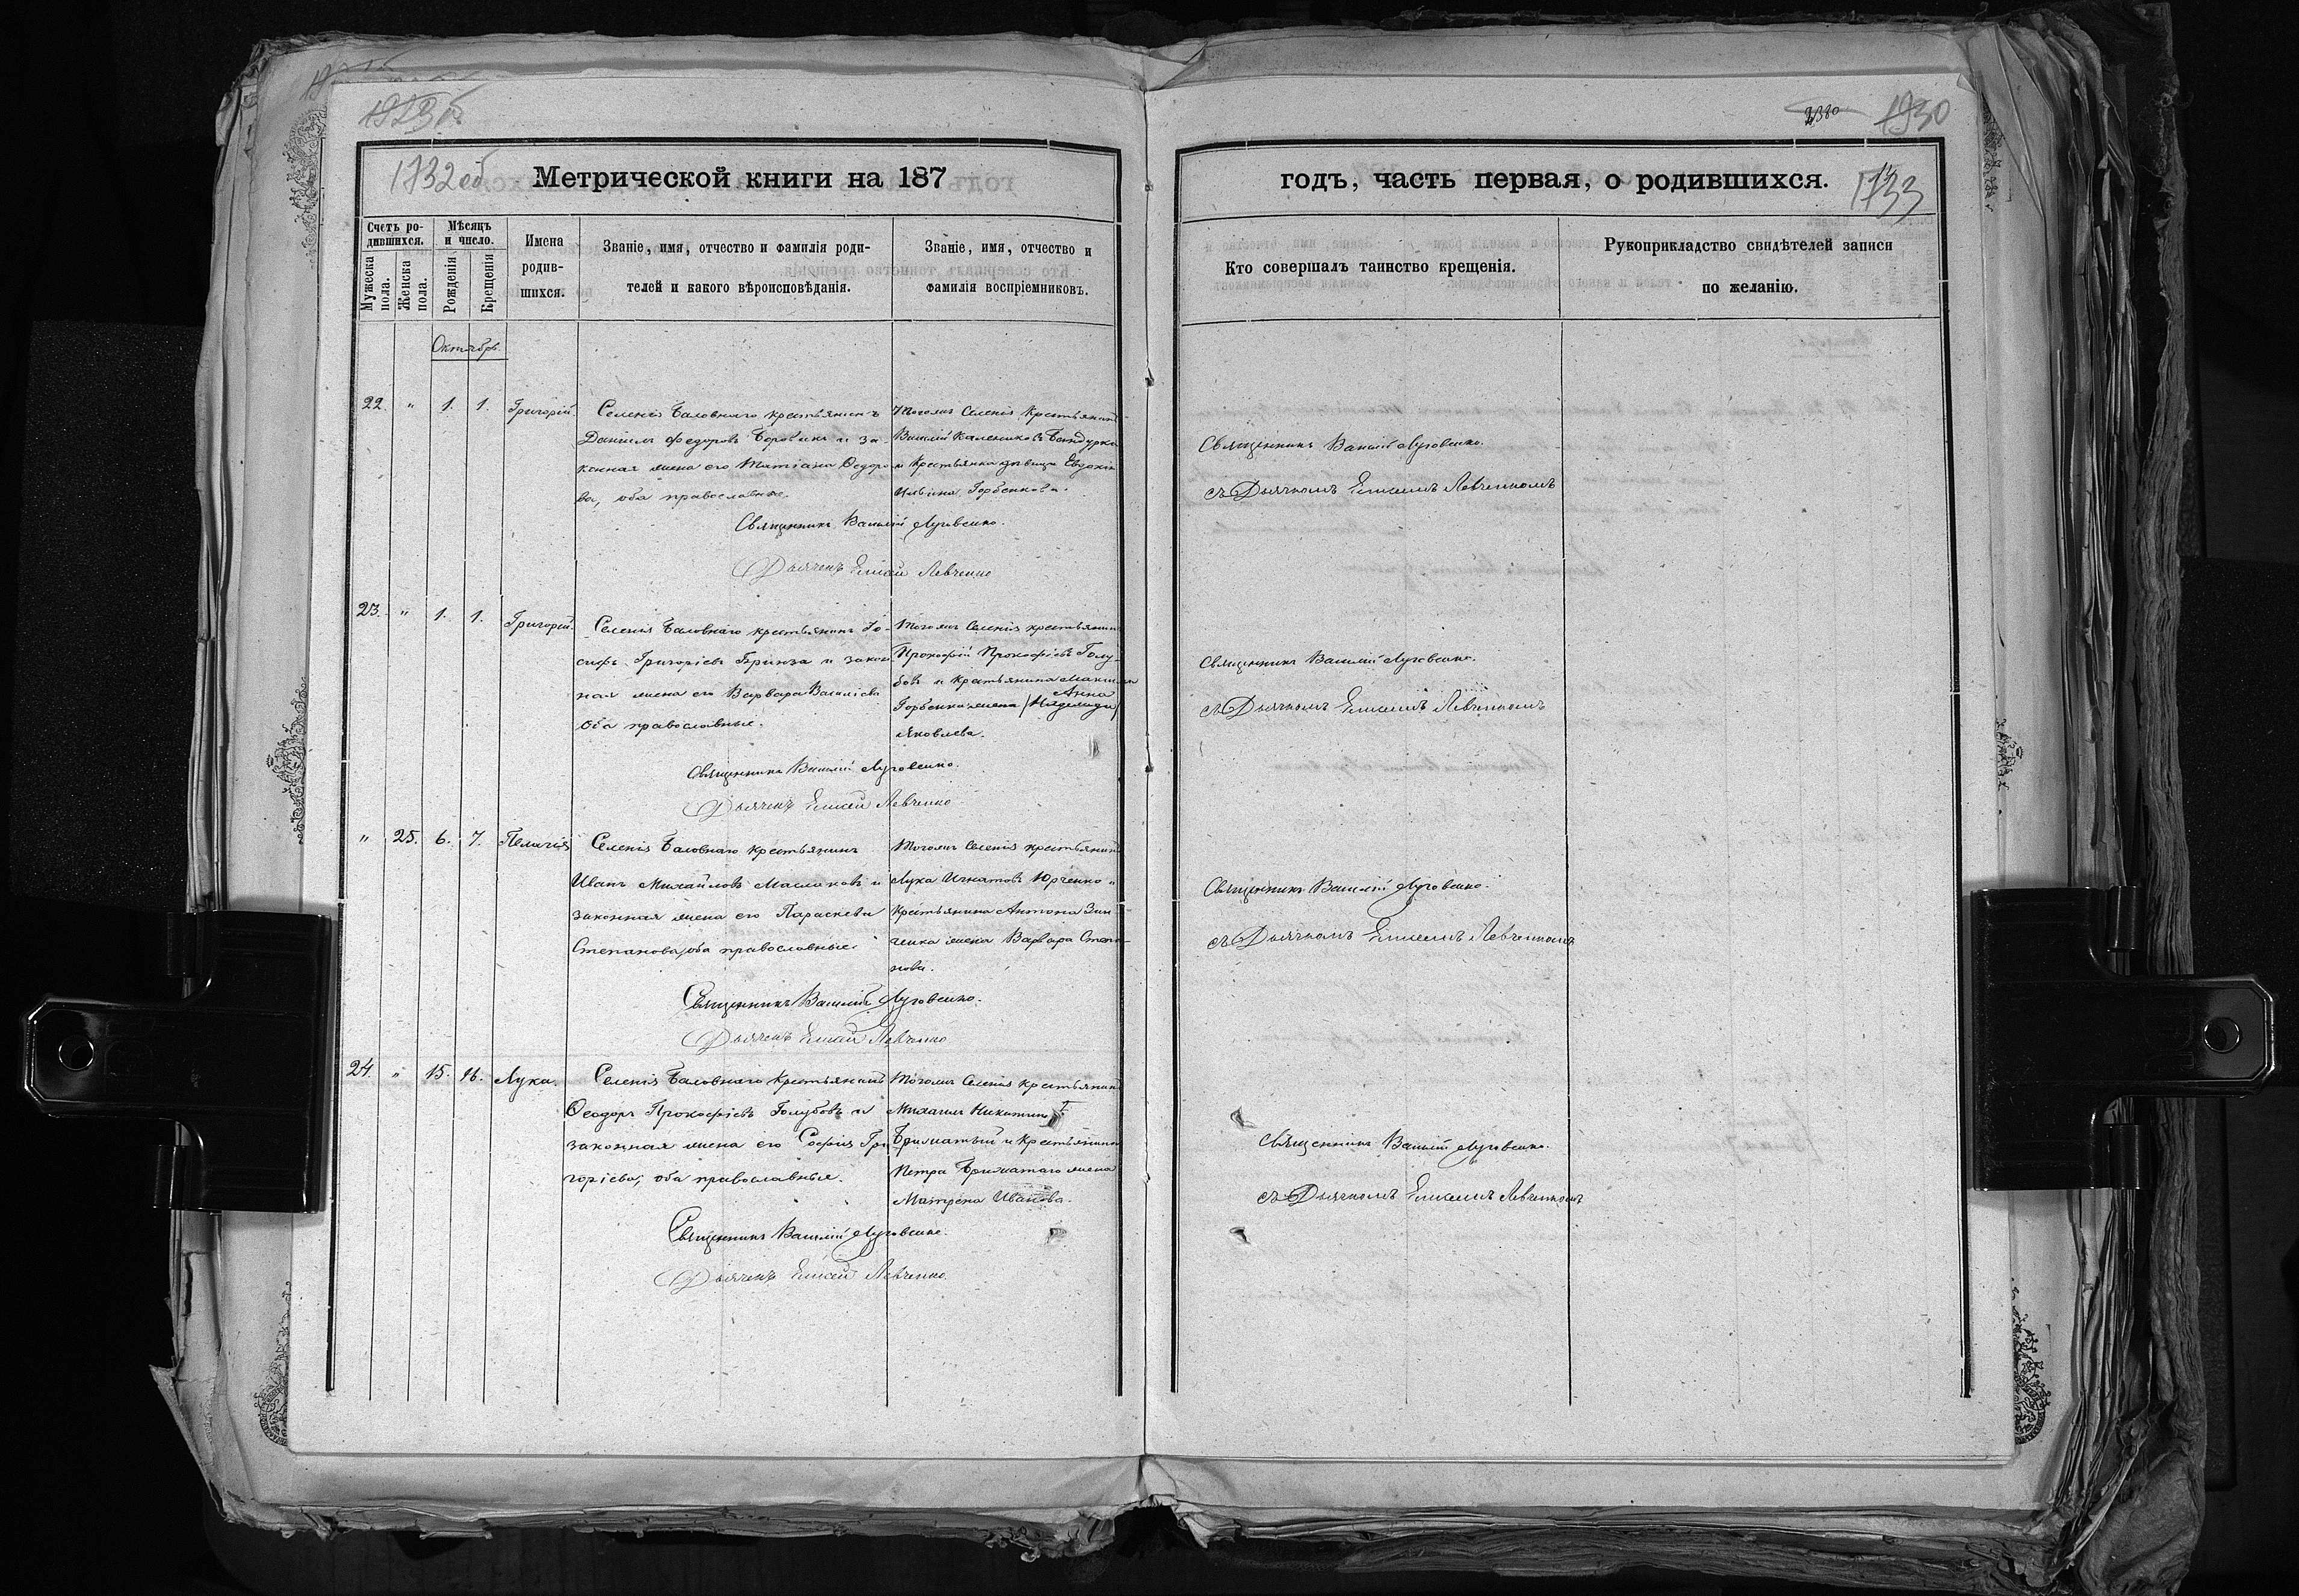 1732 об
Метрической книги на 187
Счетъ ро-
дившихся.
Мужеска пола.
Женска пола.
Мѣсяцъ
и число.
Рожденія
Крещенія
Имена
родив-
шихся.
Званіе, имя, отчество и фамилія роди-
телей и какого вѣроисповѣданія.
Званіе, имя, отчество и
фамилія воспріемниковъ.
Октябрь.
22. " 1. 1. Григорій.
Селенія Баловнаго крестьянинъ
Даніилъ Федоровъ и за-
конная жена его Татіана Ѳедоро
ва, оба православные.
Тогожъ Селенія Крестьянинъ
Василій
и Крестьянка дѣвица Евдокія
Горбенкова.
Священникъ Василій Луговенко.
Дьячекъ Елисей Левченко
23. " 1. 1. Григорій.
Селенія Баловнаго крестьянинъ Іо-
сифъ Григоріевъ и закон
ная жена его Варвара Василіева
оба православные.
Тогожъ Селенія крестьянинъ
Прокофій Прокофіевъ Голу-
бовъ и Крестьянина
Анна
Горбенка жена
Яковлева.
Священникъ Василій Луговенко.
Дьячекъ Елисей Левченко
" 25. 6. 7. Пелагія
Селенія Баловнаго крестьянинъ
Иванъ Михайловъ Маслаковъ и
законная жена его Параскева
Степанова, оба православные.
Тогожъ Селенія крестьянинъ
Лука Игнатовъ Юрченко и
Крестьянина Антона Зин
ченка жена Варвара Степа-
нова.
Священникъ Василій Луговенко.
Дьячекъ Елисей Левченко
24. " 15. 16. Лука.
Селенія Баловнаго Крестьянинъ
Ѳеодоръ Прокофіевъ Голубовъ и
законная жена его Софія Гри
горіева, оба православные.
Тогожъ Селенія крестьянинъ
Михаилъ Никитинъ
и Крестьянина
Петра жена
Матрена Иванова.
Священникъ Василій Луговенко.
Дьячекъ Елисей Левченко.
1930
1733
годъ, часть первая, о родившихся.
Кто совершалъ таинство крещенія.
Рукоприкладство свидѣтелей записи
по желанію.
Священникъ Василій Луговенко.
съ Дьячкомъ Елисеемъ Левченкомъ
Священникъ Василій Луговенко.
съ Дьячкомъ Елисеемъ Левченкомъ
Священникъ Василій Луговенко.
съ Дьячкомъ Елисеемъ Левченкомъ
Священникъ Василій Луговенко.
съ Дьячкомъ Елисеемъ Левченкомъ